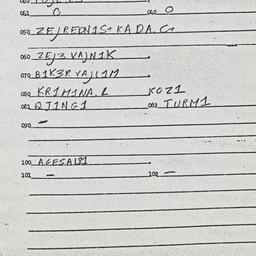 061 0 062 0
050 ZEJREON1S+KADA.G+
060 ZEJ3 VAJN1K
070 B1K3R VAJL1M
080 KR1M1NA.L KOZ1
081 QJ1NG1 082 TURM1
090 -
100 AGESAL81
101 - 102 -